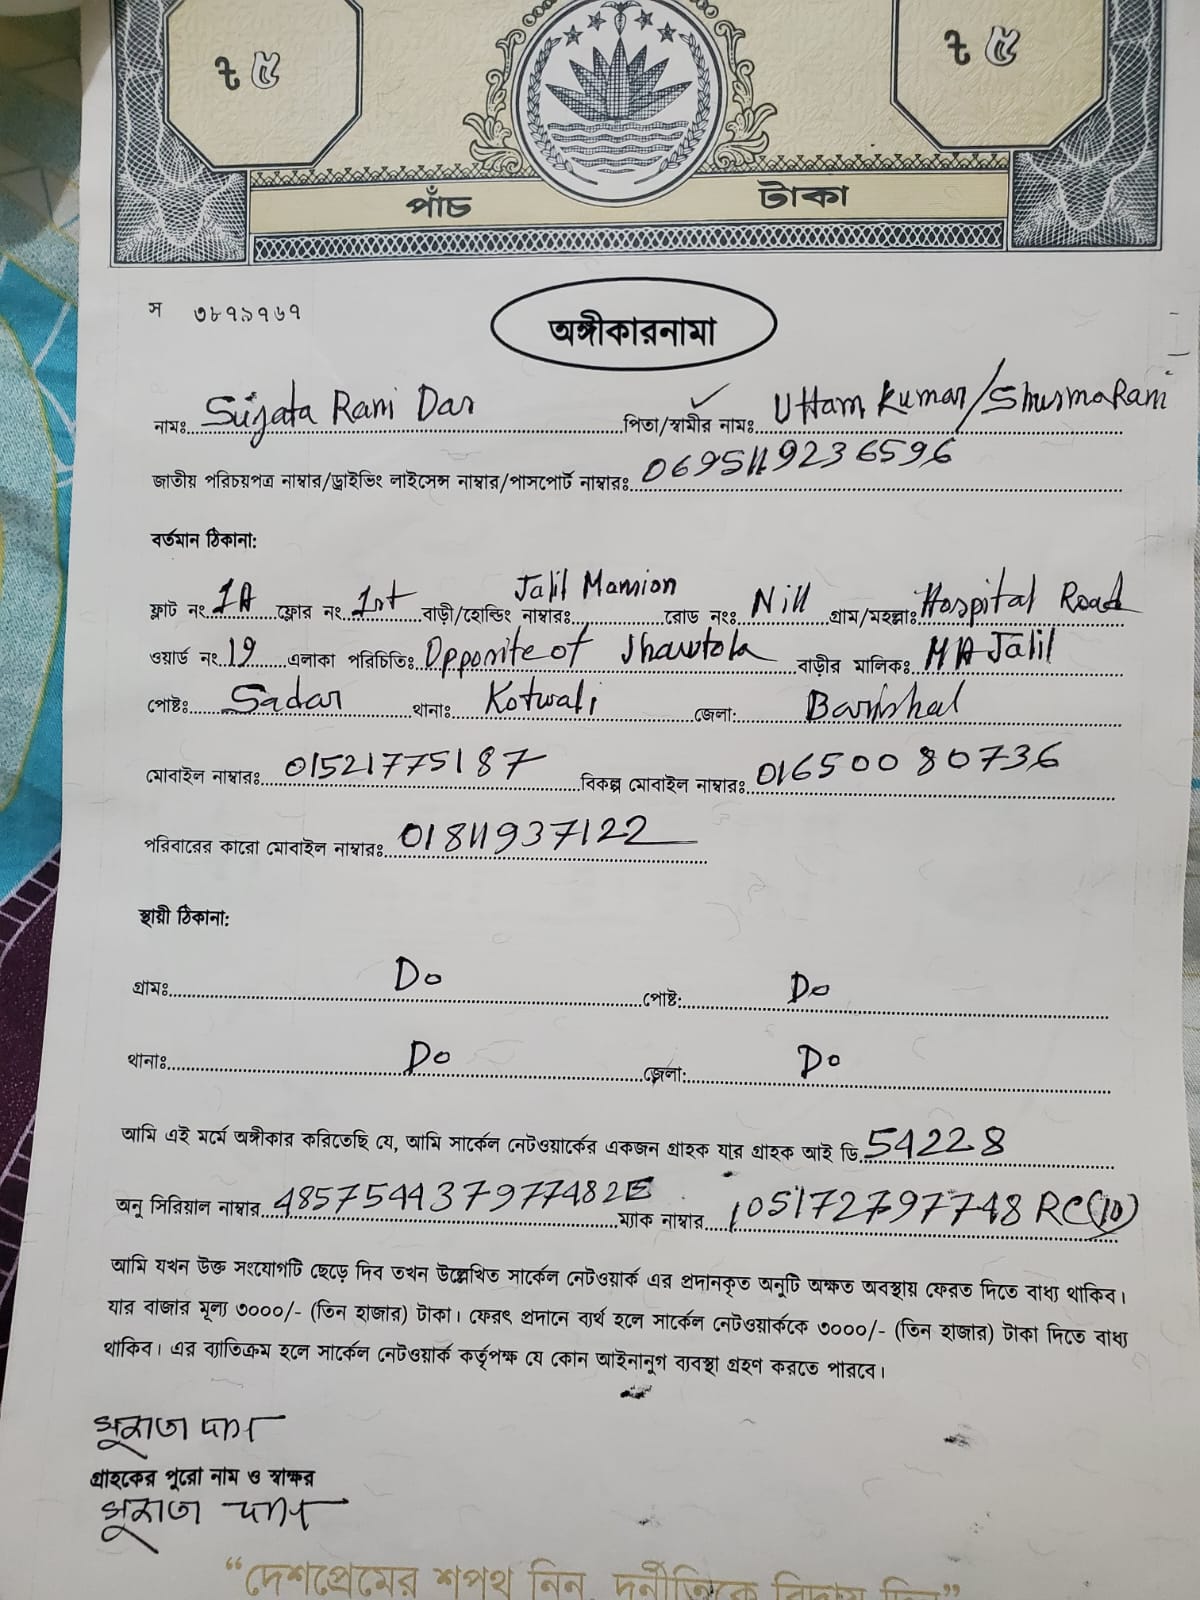 ৳ ৫ ৳ ৫
পাঁচ টাকা
স ৩৮৭১৭৬৭
অঙ্গীকারনামা
নামঃ Sujata Rani Das পিতা/স্বামীর নামঃ Uttam Kumar/Shusma Rani
জাতীয় পরিচয়পত্র নাম্বার/ড্রাইভিং লাইসেন্স নাম্বার/পাসপোর্ট নাম্বারঃ 0695119236596
বর্তমান ঠিকানা:
ফ্লাট নং 1A ফ্লোর নং 1st বাড়ী/হোল্ডিং নাম্বারঃ Jalil Mansion রোড নংঃ Nill গ্রাম/মহল্লাঃ Hospital Road
ওয়ার্ড নং 19 এলাকা পরিচিতিঃ Opposite of Jhawtola বাড়ীর মালিকঃ M A Jalil
পোষ্টঃ Sadar থানাঃ Kotwali জেলা: Barishal
মোবাইল নাম্বারঃ 01521775187 বিকল্প মোবাইল নাম্বারঃ 01650080736
পরিবারের কারো মোবাইল নাম্বারঃ 01811937122
স্থায়ী ঠিকানা:
গ্রামঃ Do পোষ্ট: Do
থানাঃ Do জেলা: Do
আমি এই মর্মে অঙ্গীকার করিতেছি যে, আমি সার্কেল নেটওয়ার্কের একজন গ্রাহক যার গ্রাহক আই ডি 54228
অনু সিরিয়াল নাম্বার 485754437977482E ম্যাক নাম্বার 105172797748 RC(10)
আমি যখন উক্ত সংযোগটি ছেড়ে দিব তখন উল্লেখিত সার্কেল নেটওয়ার্ক এর প্রদানকৃত অনুটি অক্ষত অবস্থায় ফেরত দিতে বাধ্য থাকিব।
যার বাজার মূল্য ৩০০০/- (তিন হাজার) টাকা। ফেরৎ প্রদানে ব্যর্থ হলে সার্কেল নেটওয়ার্ককে ৩০০০/- (তিন হাজার) টাকা দিতে বাধ্য
থাকিব। এর ব্যাতিক্রম হলে সার্কেল নেটওয়ার্ক কর্তৃপক্ষ যে কোন আইনানুগ ব্যবস্থা গ্রহণ করতে পারবে।
সুজাতা দাস
গ্রাহকের পুরো নাম ও স্বাক্ষর
সুজাতা দাস
“দেশপ্রেমের শপথ নিন, দুর্নীতিকে বিদায় দিন”